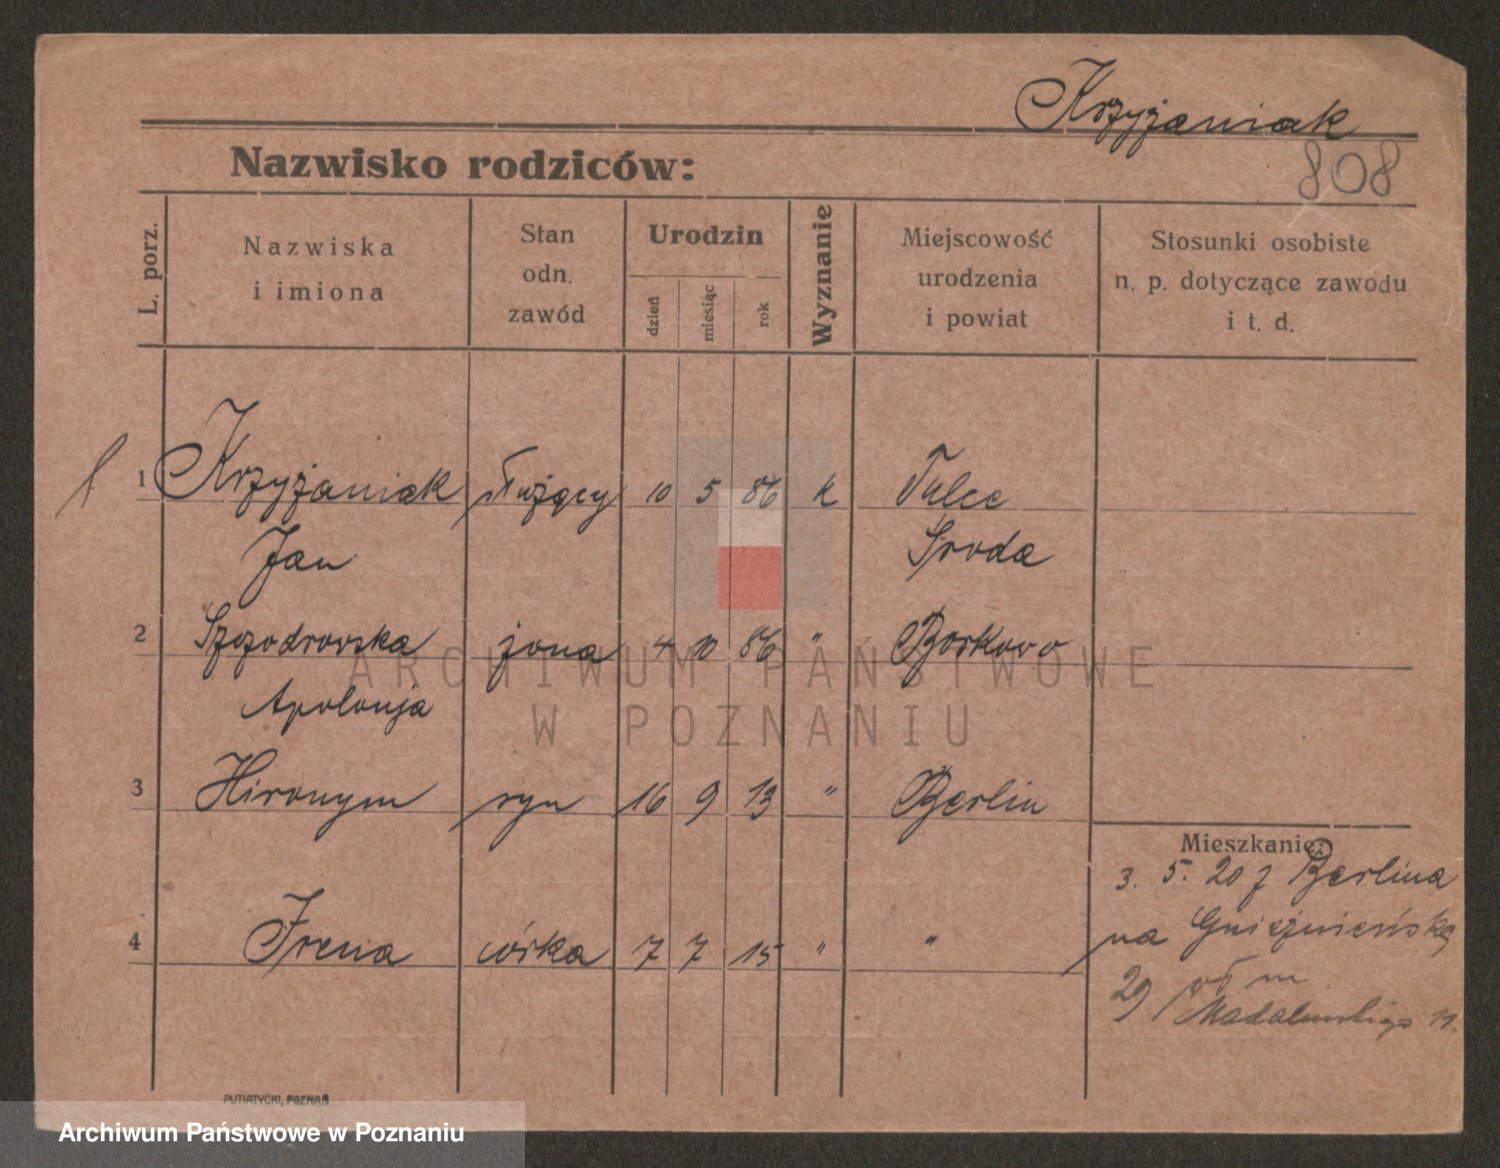 Krzyżaniak
Nazwisko rodziców:
808
L. porz.
Nazwiska
i imiona
Stan
odn.
zawód
Urodzin
dzień
miesiąc
rok
Wyznanie
Miejscowość
urodzenia
i powiat
Stosunki osobiste
n. p. dotyczące zawodu
i t. d.
1 Krzyżaniak służący 10 5 86 k Tulce
Jan Sroda
2 Szczodrowska żona 4 10 86 " Borkowo
Apolonja
3 Hironym syn 16 9 13 " Berlin
4 Irena córka 7 7 15 " "
Mieszkanie:
3. 5. 20 z Berlina
na Gnieźnieńską
29
Madalińskiego 11.
PUTIATYCKI, POZNAŃ
ARCHIWUM PAŃSTWOWE
W POZNANIU
Archiwum Państwowe w Poznaniu